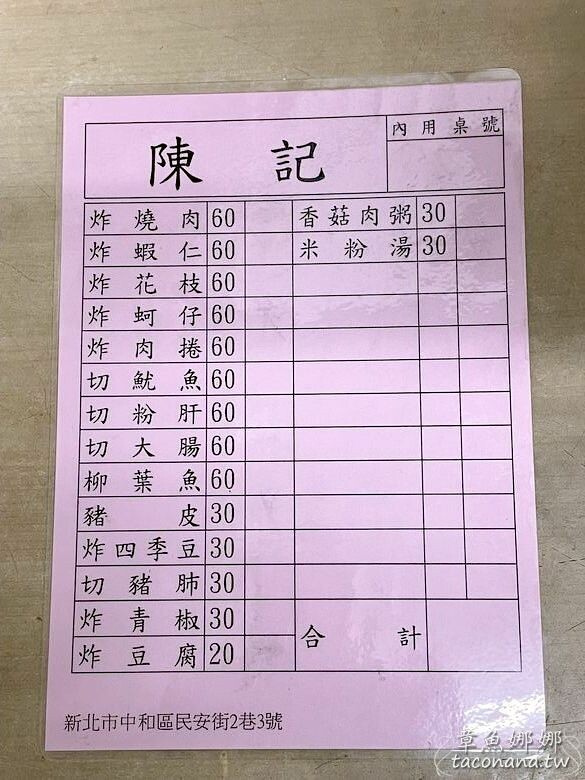 陳記
內用桌號
炸燒肉 60
炸蝦仁 60
炸花枝 60
炸蚵仔 60
炸肉捲 60
切魷魚 60
切粉肝 60
切大腸 60
柳葉魚 60
豬皮 30
炸四季豆 30
切豬肺 30
炸青椒 30
炸豆腐 20
香菇肉粥 30
米粉湯 30
合計
新北市中和區民安街2巷3號
草魚娜娜
taconana.tw